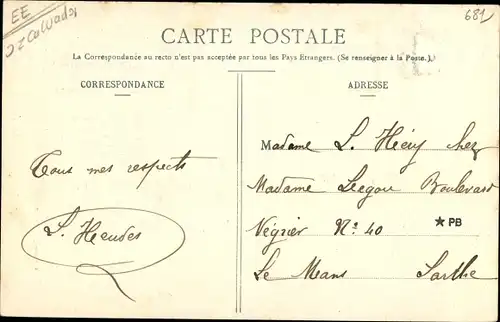 EE
Calvados
681
CARTE POSTALE
La Correspondance au recto n'est pas acceptée par tous les Pays Etrangers. (Se renseigner à la Poste.)
CORRESPONDANCE
ADRESSE
Tous mes respects
L.
Madame L. Hévy chez
Madame Boulevard
Négrier N° 40
★PB
Le Mans Sarthe